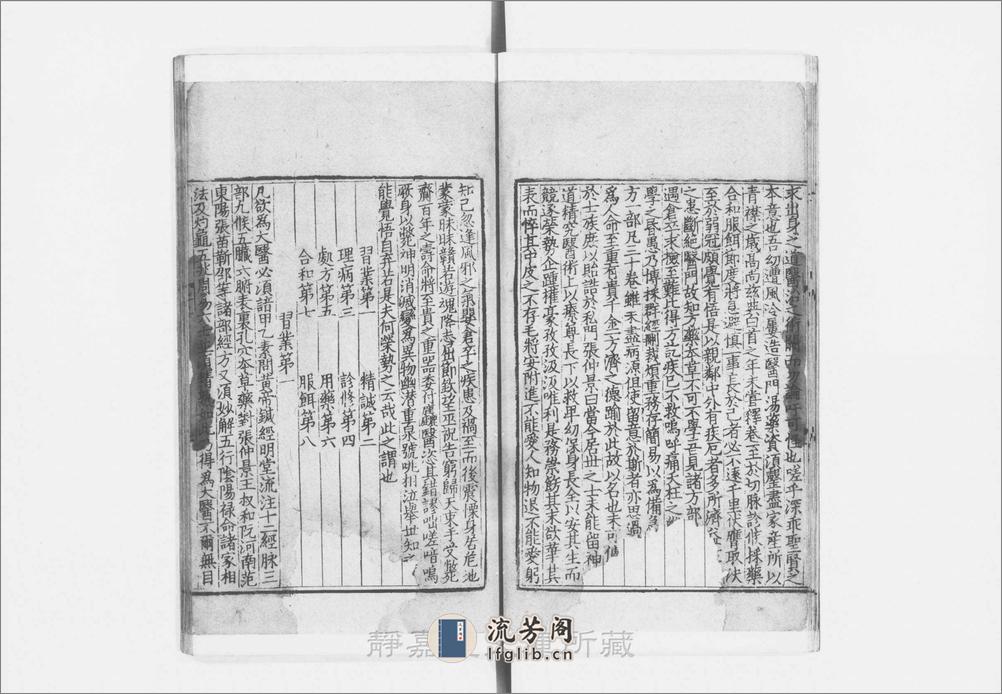 求出身之道醫治之術闕而弗論吁可怪也嗟乎深乖聖賢之
本意也吾幼遭風冷屢造醫門湯藥資須罄盡家產所以
青襟之歲高尚茲典白首之年未嘗釋卷至於切脉診候採藥
合和服餌節度將息避慎一事長於己者必不遠千里伏膺取决
至於弱冠頗覺有悟是以親鄰中外有疾厄者多所濟益
之患斷絕醫門故知方藥本草不可不學吾見諸方部
遇倉卒求撿至難比得方訖疾已不救嗚呼痛夭枉之
學之昏愚乃博採群經刪裁煩重務存簡易以為備急
方一部凡三十卷雖未盡病源但使留意於斯者亦思過
為人命至重有貴千金一方濟之德踰於此故以名也未可傳
於士族庶以貽諸於私門張仲景曰當今居世之士未能留神
道積究醫術上以療尊長下以救卑幼保身長全以安其生而
競逐榮勢企踵權豪孜孜汲汲唯利是務崇飾其末欲華其
表而悴其中皮之不存毛將安附進不能愛人知物退不能愛躬
知己忽逢風邪之氣罹倉卒之疾患及禍至而後震慄身居危地
蒙蒙昧昧戇若遊魂降志屈節欽望巫祝告窮歸天束手受斃
齎百年之壽命將至貴之重器委付庸醫恣其錯謬咄嗟喑嗚
厥身以斃神明消滅變為異物幽潛重泉號咷相泣舉世知之
能覺悟自弃若是夫何榮勢之云哉此之謂也
習業第一　精誠第二
理病第三　診候第四
處方第五　用藥第六
合和第七　服餌第八
習業第一
凡欲為大醫必須諳甲乙素問黃帝鍼經明堂流注十二經脉三
部九候五臟六腑表裏孔穴本草藥對張仲景王叔和阮河南范
東陽張苗靳邵等諸部經方又須妙解五行陰陽祿命諸家相
法及灼龜五兆周易六 得為大醫不爾無目
流芳阁
lfglib.cn
靜嘉 所藏